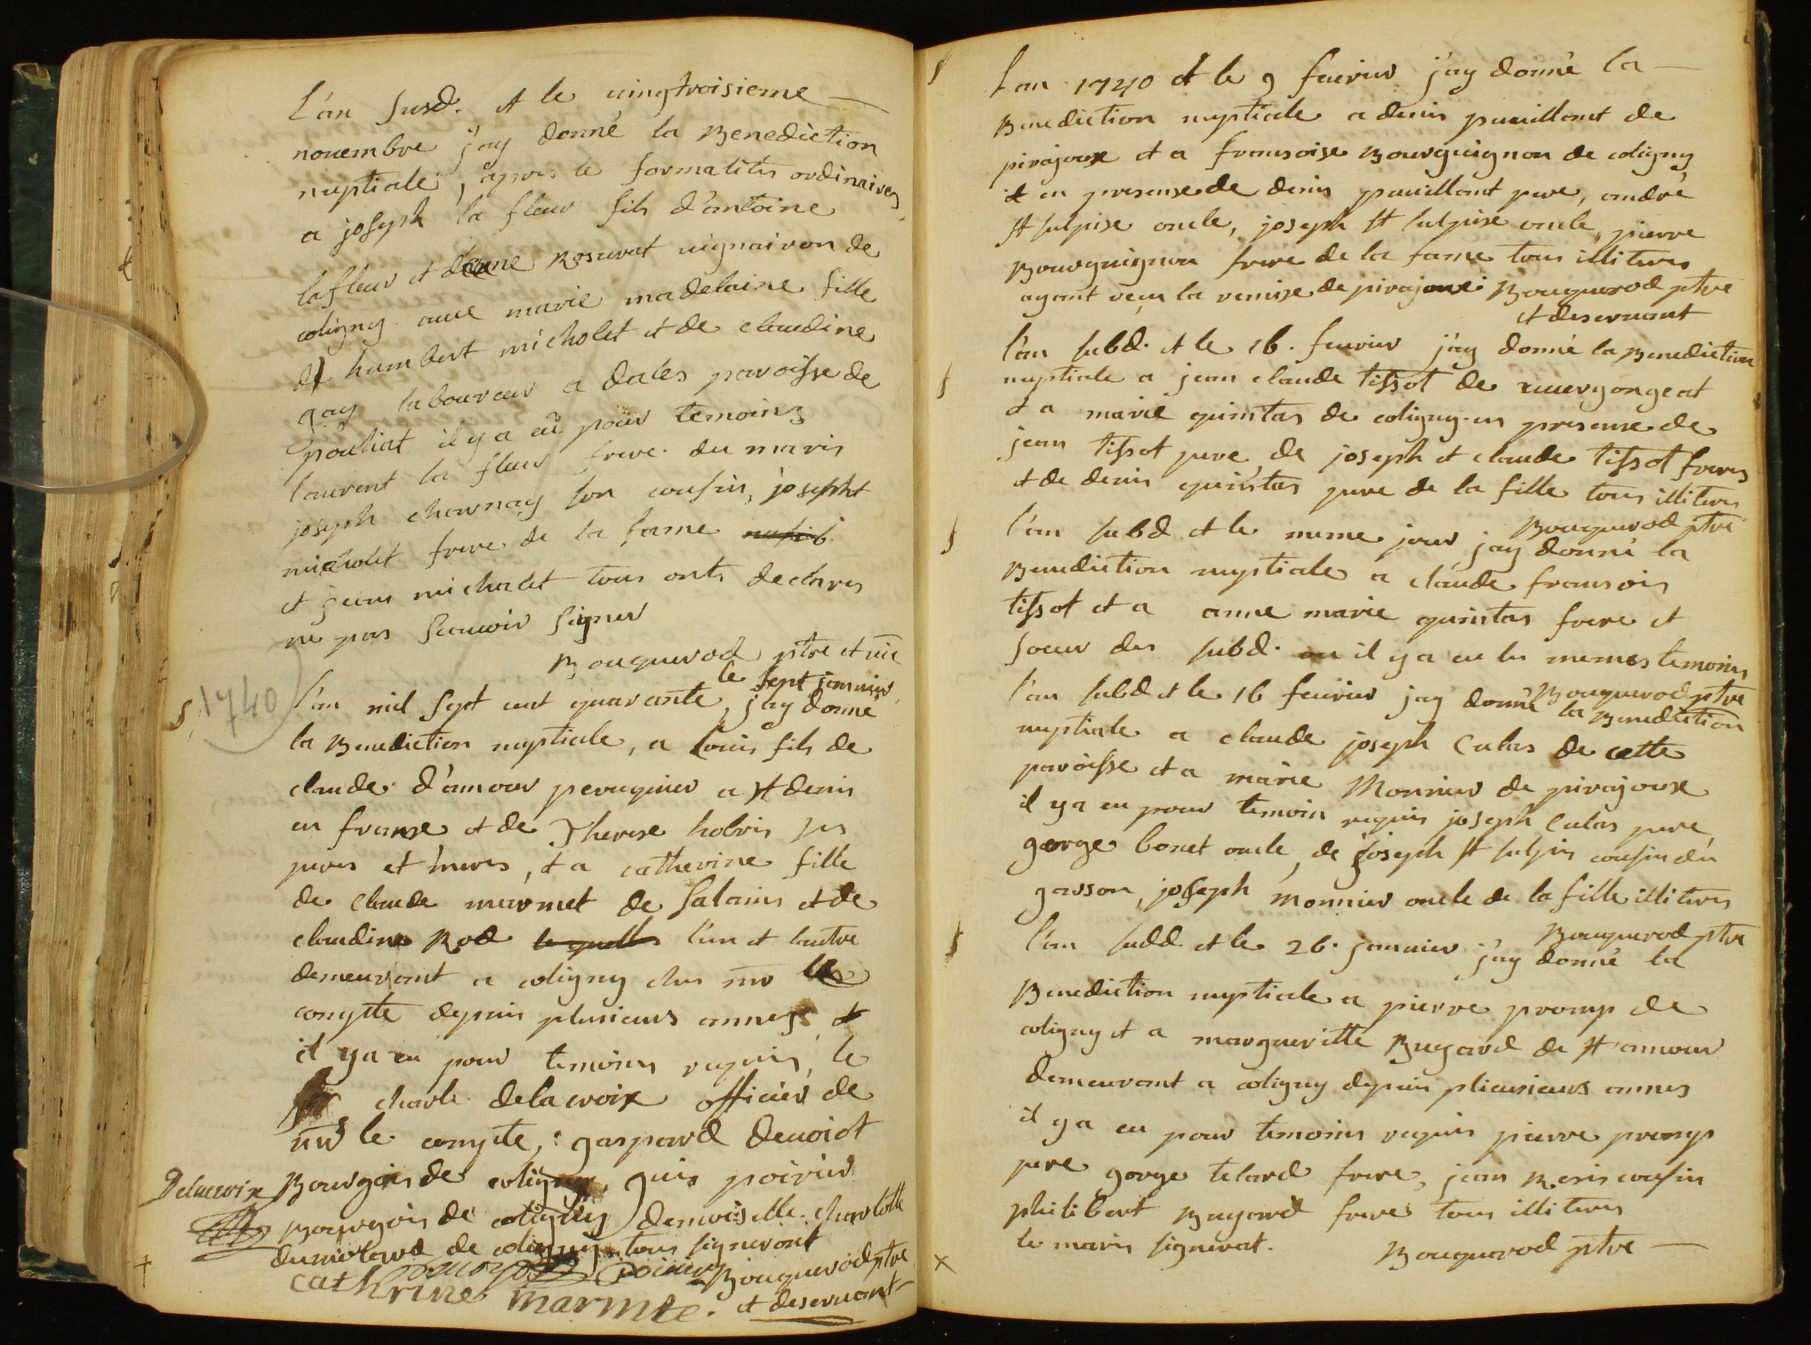 L'an susd. et le vingtroisieme
novembre j'ay donné la Benediction
nuptiale, apres le formalités ordinaires,
a joseph la fleur fils d'antoine
lafleur et d'anne Rosurat vigneron de
coligny avec marie madelaine fille
d humbert micholet et de claudine
gay laboureur a dales paroisse de
pouliat il y a eû pour temoins
laurent la fleur frere du maris
joseph charnay son cousin, joseph
micholet frere de la fame
et jean micholet tous onts declares
ne pas scavoir signer
Bouquerod ptre et vic
1740
le sept janvier
l'an mil sept cent quarante, j'ay donné
la Benediction nuptiale, a louis fils de
claude d'amour peruquier a st denis
en franse et de Therese holvris ses
peres et meres, et a catherine fille
de claude marmet de salains et de
claudine Rod le quells l'un et lautre
demeurant a coligny ches mr le
compte depuis plusieurs annes et
il y a eu pour temoins requis, le
sr charle delacroix officier de
mr le compte, gaspard denoiot
Bourgois de coligny, guis poirier
Bourgois de coligny demoiselle charlotte
dumolard de coligny tous signeront
Delacroix
poirier Bouquerod ptre
cathrine marmte. et deservant
l'an 1740 et le 9 fevrier j'ay donné la
Benediction nuptiale a denis pauillont de
pirajoux et a fransoise Bourguignon de coligny
et en presense de denis pauillont pere, andré
st sulpise oncle, joseph st sulpise oncle, pierre
Bourguignon frere de la fame tous illiteres
ayant veu la remise de pirajoux Bouquerod ptre
et deservant
l'an subd. et le 16. fevrier j'ay donné la Benediction
nuptiale a jean claude tissot de vergongeat
et a marie quintas de coligny en presense de
jean tissot pere de joseph et claude tissot freres
et de denis quintas pere de la fille tous illiteres
Bouquerod ptre
l'an subd et le meme jour jay donné la
Benediction nuptiale a claude fransois
tissot et a anne marie quintas frere et
soeur des subd. il y a eu les memes temoins
Bouquerod ptre
l'an subd et le 16 fevrier jay donné la Benediction
nuptiale a claude joseph Culas de cette
paroisse et a marie Monnier de pirajoux
il y a eu pour temoin requis joseph Culas pere
george bonet oncle, de joseph st sulpis cousin du
garson, joseph monnier oncle de la fille illiteres
Bouquerod ptre
l'an sudd et le 26. janvier j'ay donné la
Benediction nuptiale a pierre promp de
coligny et a margueritte Bugard de st amour
demeurant a coligny depuis plieusieurs annes
il y a eu pour temoins requis pierre promp
pere gorge telard frere, jean Moris cousin
philibert Bugard frere tous illiteres
le maris signerat. Bouquerod ptre